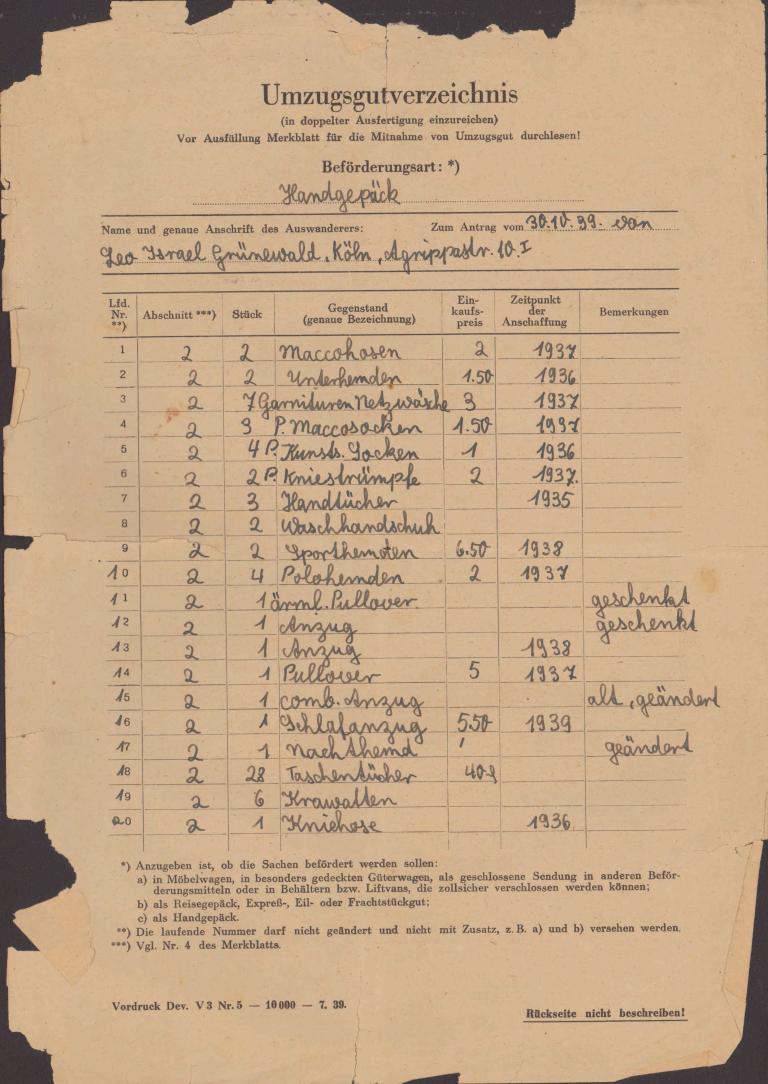 Umzugsgutverzeichnis
(in doppelter Ausfertigung einzureichen)
Vor Ausfüllung Merkblatt für die Mitnahme von Umzugsgut durchlesen!
Beförderungsart: *)
Handgepäck
Name und genaue Anschrift des Auswanderers: Zum Antrag vom 30.10.39. von
Leo Israel Grünewald, Köln, Agrippastr. 10.I
Lfd. Nr. **) Abschnitt ***) Stück Gegenstand (genaue Bezeichnung) Einkaufspreis Zeitpunkt der Anschaffung Bemerkungen
1 2 2 Maccohosen 2 1937
2 2 2 Unterhemden 1.50 1936
3 2 7 Garnituren Netzwäsche 3 1937
4 2 3 P. Maccosocken 1.50 1937
5 2 4 P. Kunsts. Socken 1 1936
6 2 2 P. Kniestrümpfe 2 1937.
7 2 3 Handtücher 1935
8 2 2 Waschhandschuh
9 2 2 Sporthemden 6.50 1938
10 2 4 Polohemden 2 1937
11 2 1 ärml. Pullover geschenkt
12 2 1 Anzug geschenkt
13 2 1 Anzug 1938
14 2 1 Pullover 5 1937
15 2 1 comb. Anzug alt, geändert
16 2 1 Schlafanzug 5.50 1939
17 2 1 Nachthemd geändert
18 2 28 Taschentücher 40
19 2 6 Krawatten
20 2 1 Kniehose 1936
*) Anzugeben ist, ob die Sachen befördert werden sollen:
a) in Möbelwagen, in besonders gedeckten Güterwagen, als geschlossene Sendung in anderen Beför-
derungsmitteln oder in Behältern bzw. Liftvans, die zollsicher verschlossen werden können;
b) als Reisegepäck, Expreß-, Eil- oder Frachtstückgut;
c) als Handgepäck.
**) Die laufende Nummer darf nicht geändert und nicht mit Zusatz, z. B. a) und b) versehen werden.
***) Vgl. Nr. 4 des Merkblatts.
Vordruck Dev. V 3 Nr. 5 — 10 000 — 7. 39.
Rückseite nicht beschreiben!